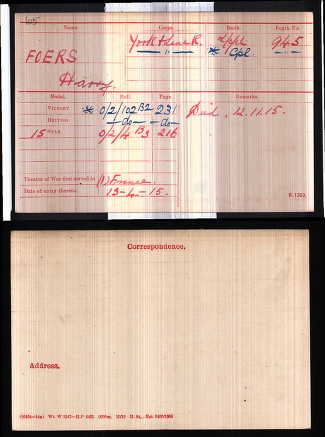 Name. Corps. Rank. Regtl. No.
FOERS York & Lanc R. L/Cpl 945
Harry " * Cpl. - " -
Medal. Roll. Page. Remarks.
VICTORY * O/2/102 B2 231 Died. 12.11.15.
BRITISH - do - - do -
15 STAR O/2/4 B3 216
Theatre of War first served in (1) France.
Date of entry therein 13-4-15.
K. 1380.
Correspondence.
Address.